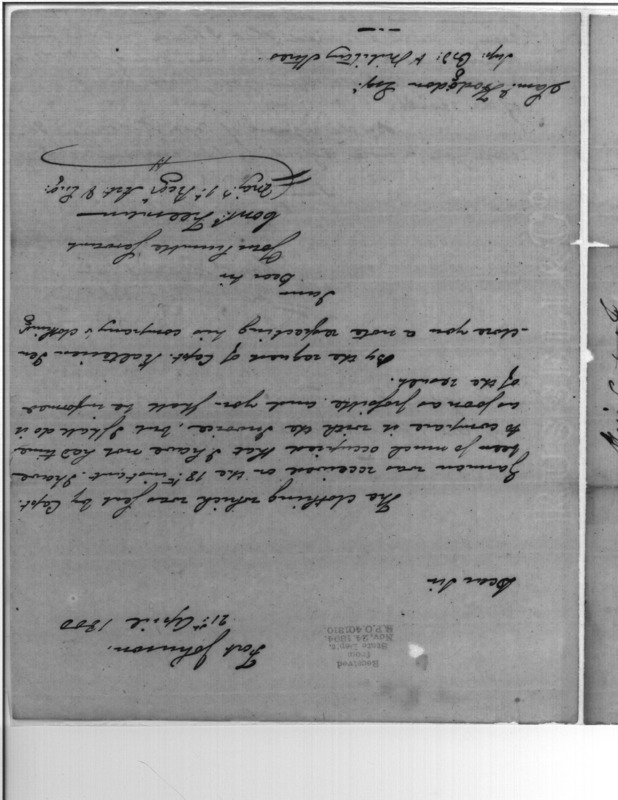 Fort Johnson.
21st April 1800
Received
from
State Dep't.
Nov. 24, 1894
R.P.O. 401810
Dear Sir
The clothing which was sent by Capt.
Jamson was received on the 18th instant. I have
been so much occupied that I have not had time
to compare it with the Invoice, but I shall do it
as soon as possible and you shall be informed
of the result.
By the request of Capt. Kalteisen I en
close you a note respecting his company's clothing
I am
Dear Sir
Your humble Servant
Const. Freeman
Maj. 1st Regt. Art. & Eng.
Sam. Hodgdon Esq.
Sup: Gl: & Military Stores.